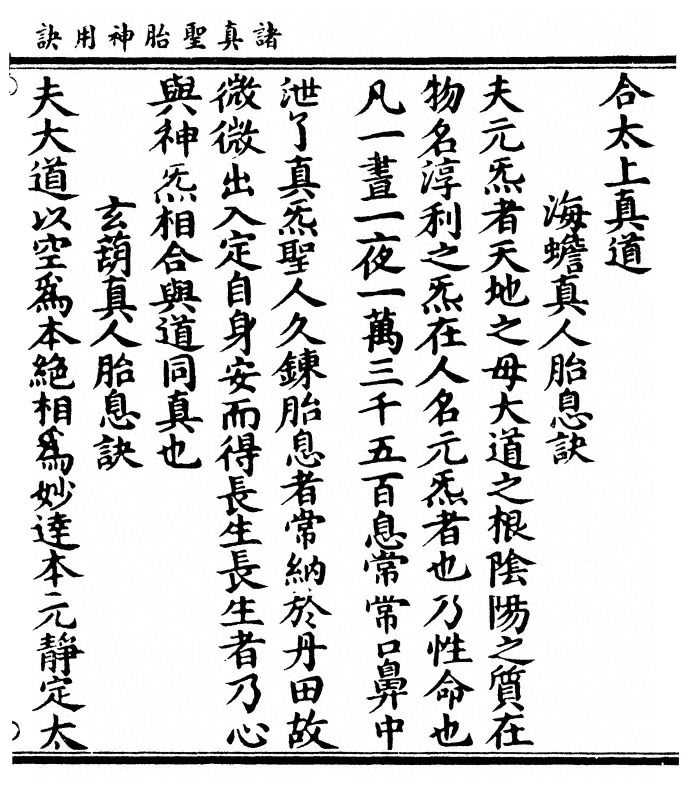 諸真聖胎神用訣
合太上真道
海蟾真人胎息訣
夫元炁者天地之母大道之根陰陽之質在
物名淳利之炁在人名元炁者也乃性命也
凡一晝一夜一萬三千五百息常常口鼻中
泄了真炁聖人久鍊胎息者常納於丹田故
微微出入定自身安而得長生長生者乃心
與神炁相合與道同真也
玄葫真人胎息訣
夫大道以空為本絕相為妙達本元靜定太